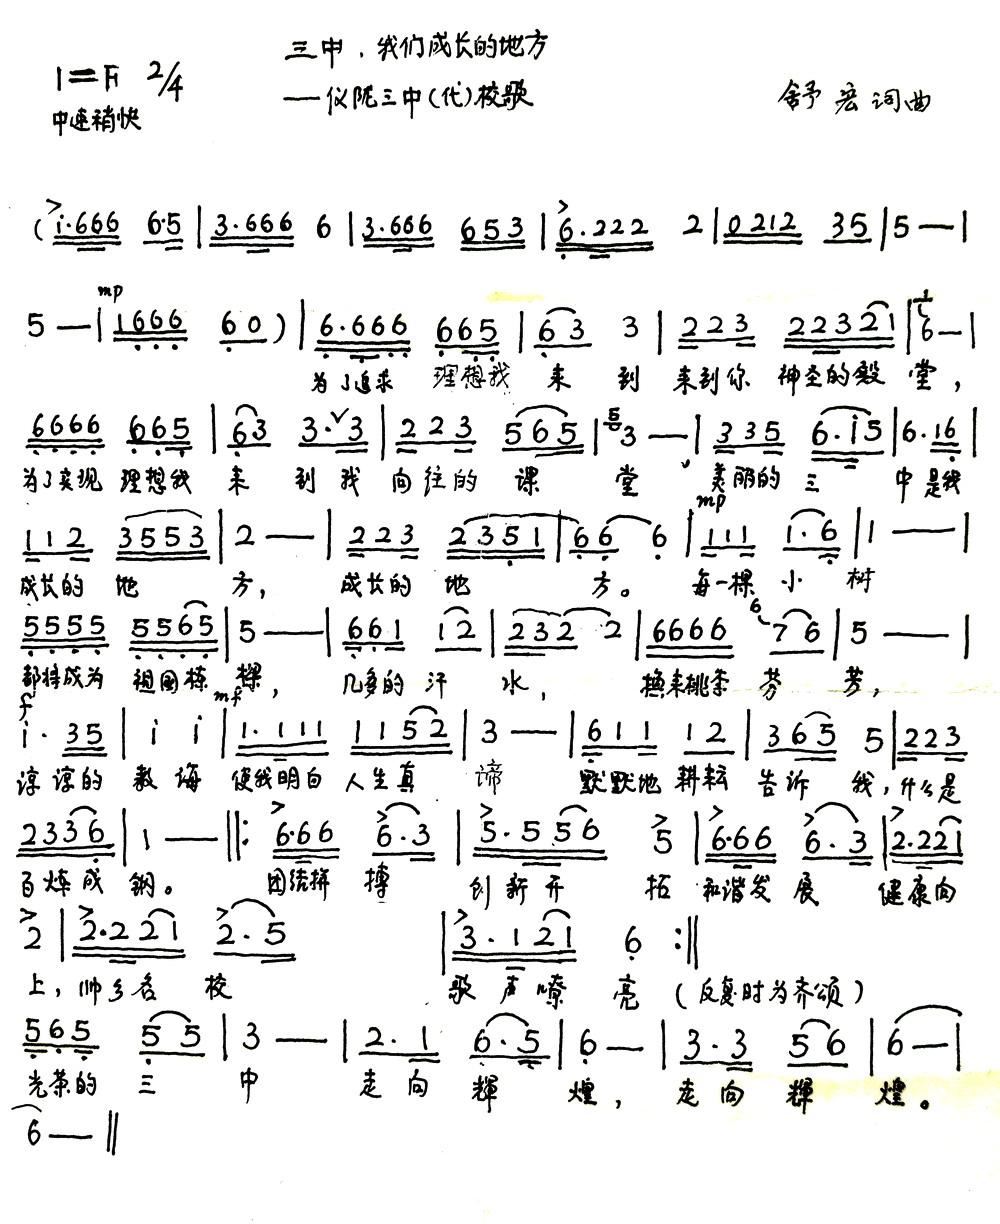 三中，我们成长的地方
1=F 2/4
——仪陇三中(代)校歌
舒宏词曲
中速稍快
(i·666 6·5|3·666 6|3·666 653|6·222 2|0212 35|5—|
mp
5—|1666 60)|6·666 665|63 3|223 22321|6—|
为了追求 理想我 来 到 来到你 神圣的殿 堂，
6666 665|63 3·3|223 565|3—|335 6·i5|6·16|
为了实现 理想我 来 到我 向往的 课 堂 美丽的 三 中是我
mp
112 3553|2—|223 2351|66 6|111 1·6|1—|
成长的 地 方， 成长的 地 方。 每一棵 小 树
5555 5565|5—|661 12|232 2|6666 76|5—|
都将成为 祖国栋 樑， 几多的 汗 水， 换来桃李 芬 芳，
f mf
i·35|i i|1·111 1152|3—|611 12|365 5|223|
谆谆的 教诲 使我明白 人生真 谛 默默地 耕耘 告诉 我，什么是
2336|1—‖:6·66 6·3|5·556 5|6·66 6·3|2·221|
百炼成 钢。 团结拼 搏 创新开 拓 和谐发 展 健康向
2|2·221 2·5 |3·121 6:‖
上，帅乡名 校 歌声嘹 亮 (反复时为齐颂)
565 55|3—|2·1 6·5|6—|3·3 56|6—|
光荣的 三 中 走向 辉 煌， 走向 辉 煌。
6—‖